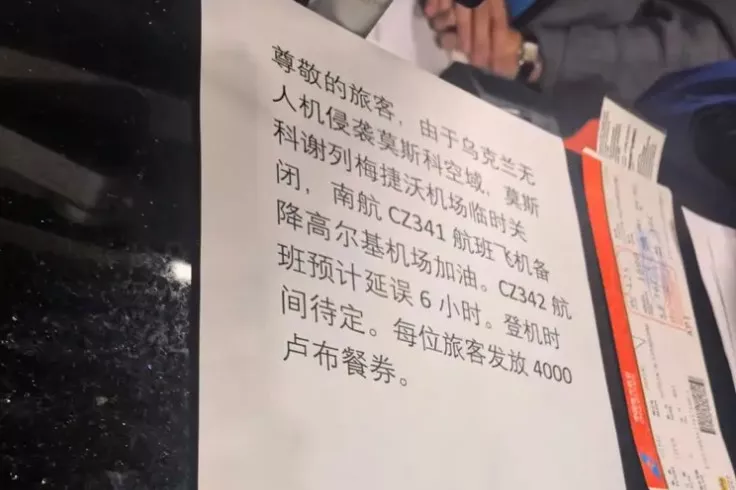 尊敬的旅客，由于乌克兰无
人机侵袭莫斯科空域，莫斯
科谢列梅捷沃机场临时关
闭，南航 CZ341 航班飞机备
降高尔基机场加油。CZ342 航
班预计延误 6 小时。登机时
间待定。每位旅客发放 4000
卢布餐券。